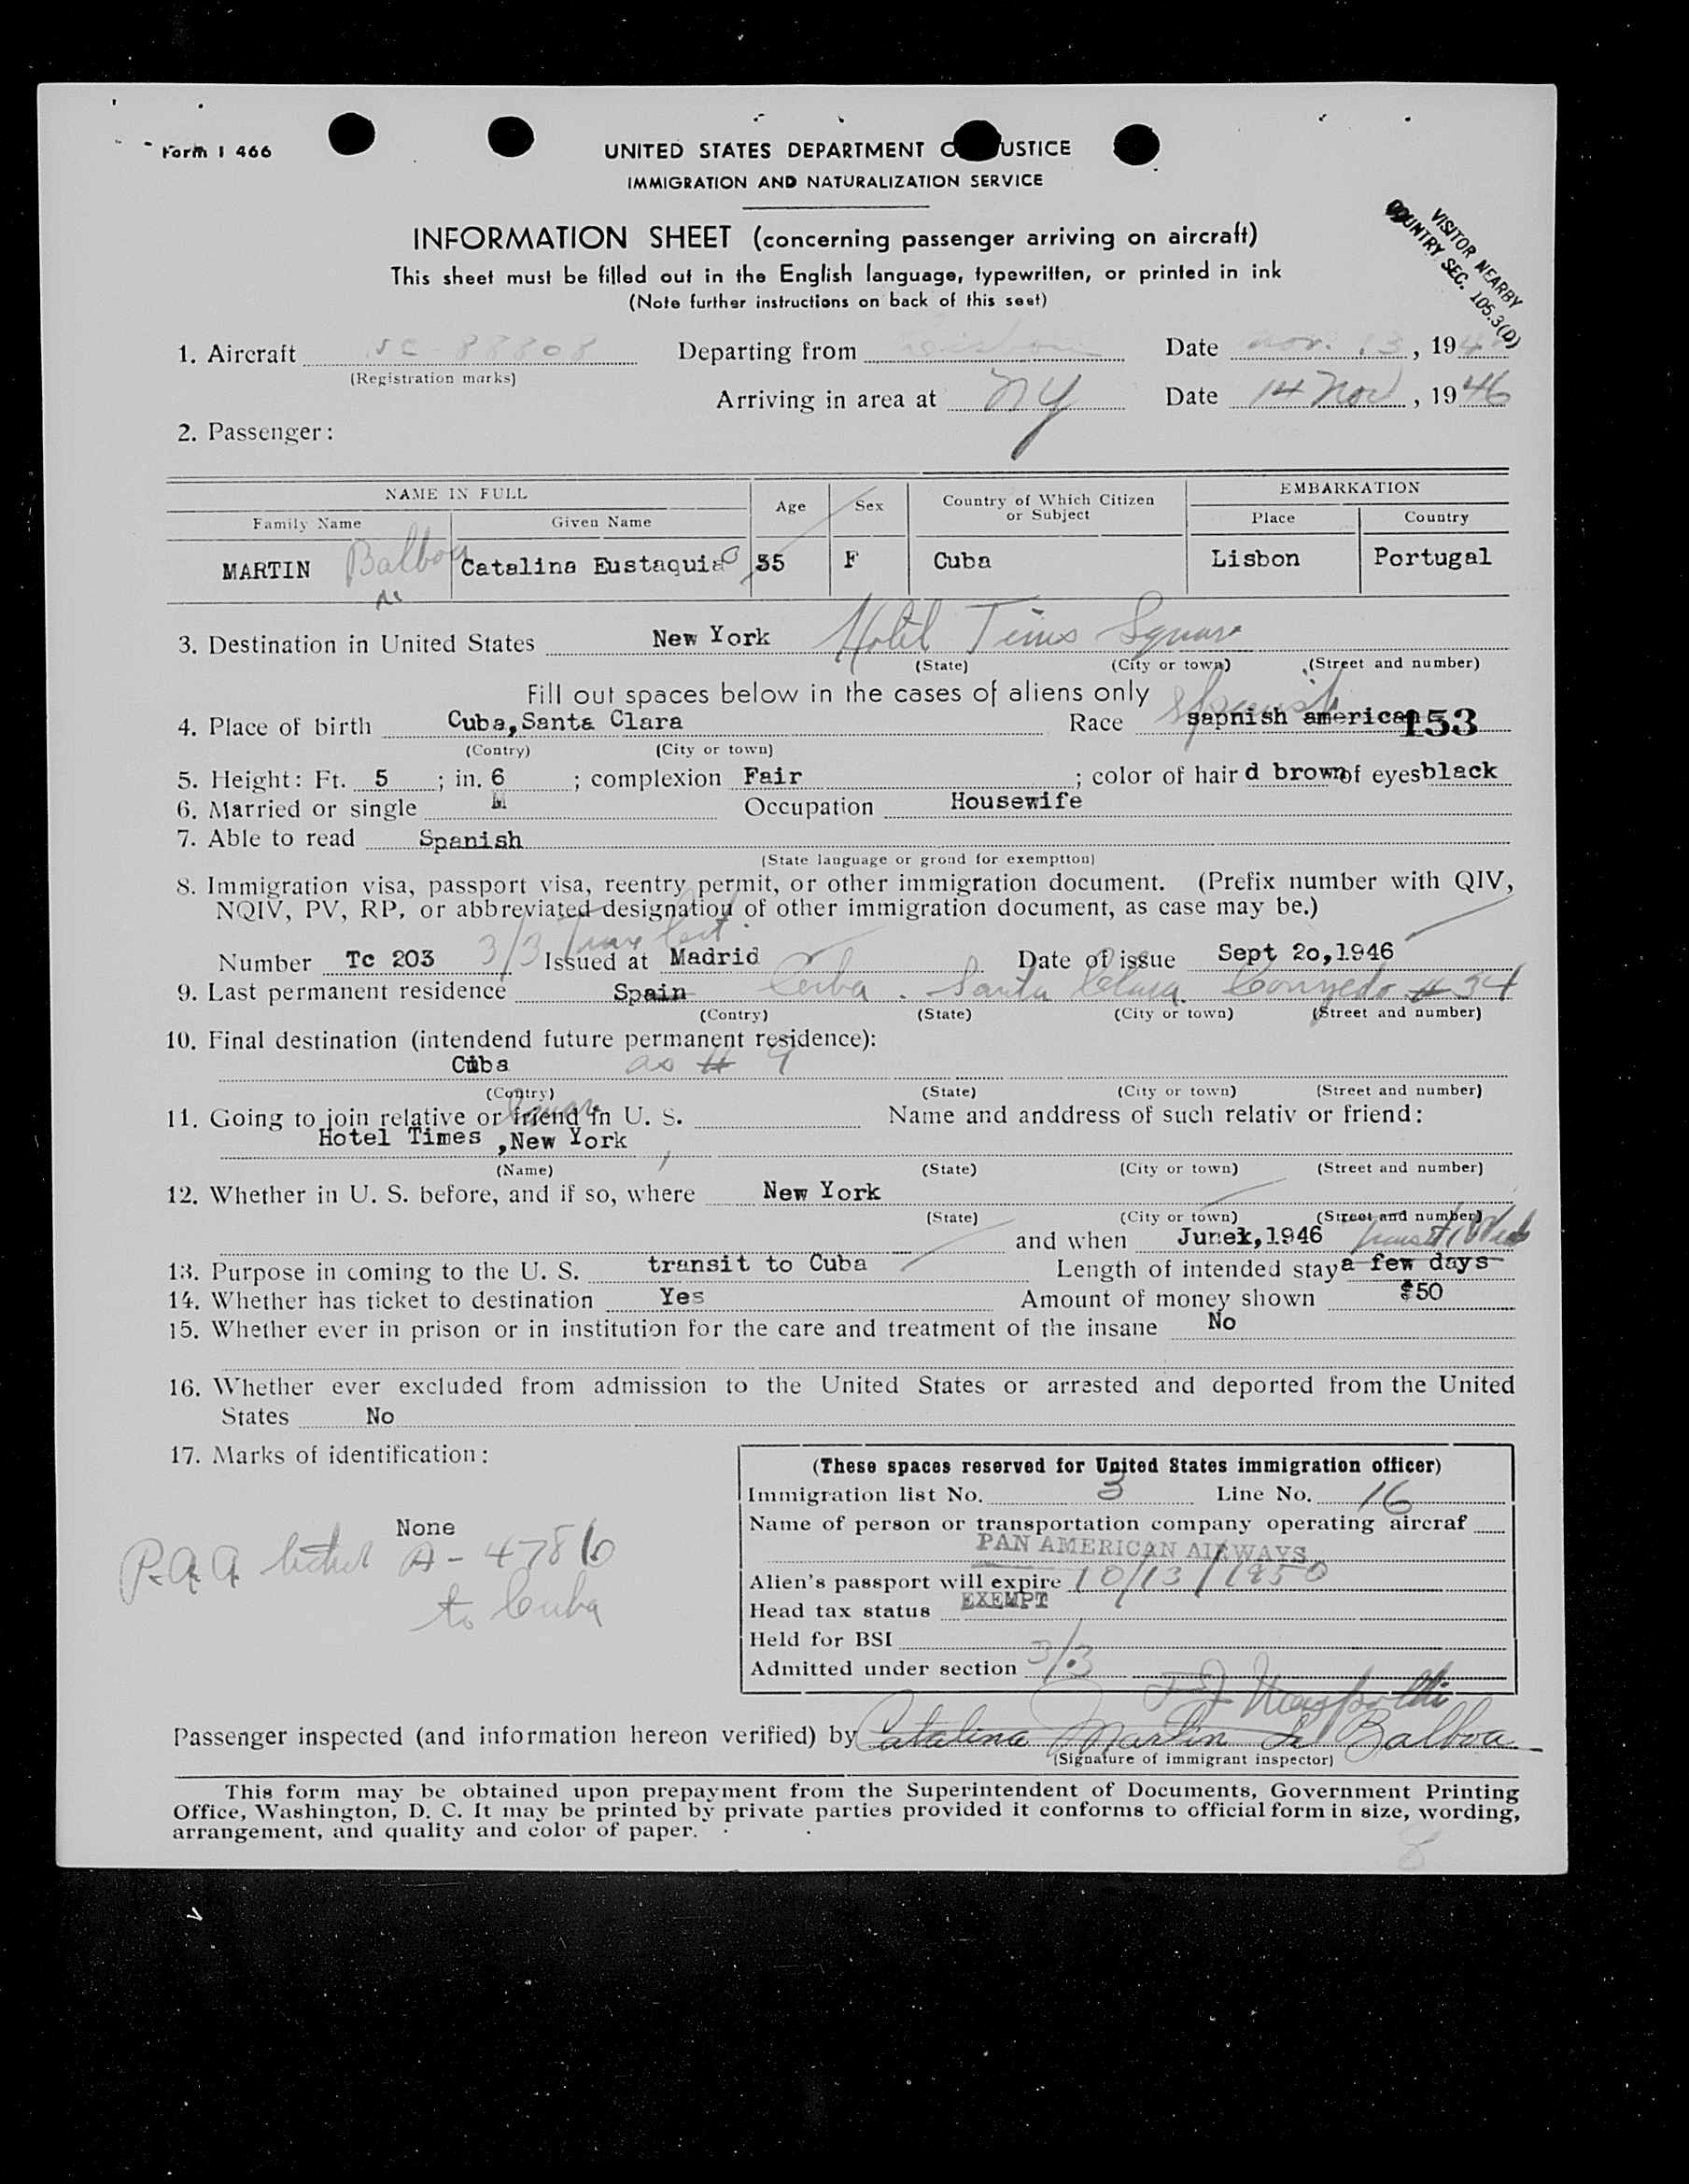 Form I 466
UNITED STATES DEPARTMENT O USTICE
IMMIGRATION AND NATURALIZATION SERVICE
VISITOR NEARBY
COUNTRY SEC. 105.3(D)
INFORMATION SHEET (concerning passenger arriving on aircraft)
This sheet must be filled out in the English language, typewritten, or printed in ink
(Note further instructions on back of this seet)
1. Aircraft NC 88808 Departing from Lisbon Date Nov. 13, 194
(Registration marks)
Arriving in area at NY Date 14 Nov, 1946
2. Passenger:
NAME IN FULL Age Sex Country of Which Citizen or Subject EMBARKATION
Family Name Given Name Place Country
MARTIN Balboa Catalina Eustaquia 35 F Cuba Lisbon Portugal
3. Destination in United States New York Hotel Times Square
(State) (City or town) (Street and number)
Fill out spaces below in the cases of aliens only
4. Place of birth Cuba, Santa Clara Race Spanish sapnish american 153
(Contry) (City or town)
5. Height: Ft. 5; in. 6; complexion Fair; color of hair d brown of eyes black
6. Married or single M Occupation Housewife
7. Able to read Spanish
(State language or grond for exemptton)
8. Immigration visa, passport visa, reentry permit, or other immigration document. (Prefix number with QIV,
NQIV, PV, RP, or abbreviated designation of other immigration document, as case may be.)
Number Tc 203 3/3 Issued at Madrid Date of issue Sept 2o,1946
9. Last permanent residence Spain Cuba. Santa Clara. # 34
(Contry) (State) (City or town) (Street and number)
10. Final destination (intendend future permanent residence):
Cuba as # 9
(Contry) (State) (City or town) (Street and number)
11. Going to join relative or friend in U. S. Name and anddress of such relativ or friend:
Hotel Times Square, New York
(Name) (State) (City or town) (Street and number)
12. Whether in U. S. before, and if so, where New York
(State) (City or town) (Street and number)
and when June, 1946
13. Purpose in coming to the U. S. transit to Cuba Length of intended stay a few days
14. Whether has ticket to destination Yes Amount of money shown $50
15. Whether ever in prison or in institution for the care and treatment of the insane No
16. Whether ever excluded from admission to the United States or arrested and deported from the United
States No
17. Marks of identification:
None
P.A.A. ticket A-47816
to Cuba
(These spaces reserved for United States immigration officer)
Immigration list No. 3 Line No. 16
Name of person or transportation company operating aircraf
PAN AMERICAN AIRWAYS
Alien's passport will expire 10/13/1950
Head tax status EXEMPT
Held for BSI
Admitted under section 3/3
Passenger inspected (and information hereon verified) by Catalina Martin de Balboa
(Signature of immigrant inspector)
This form may be obtained upon prepayment from the Superintendent of Documents, Government Printing
Office, Washington, D. C. It may be printed by private parties provided it conforms to official form in size, wording,
arrangement, and quality and color of paper.
8